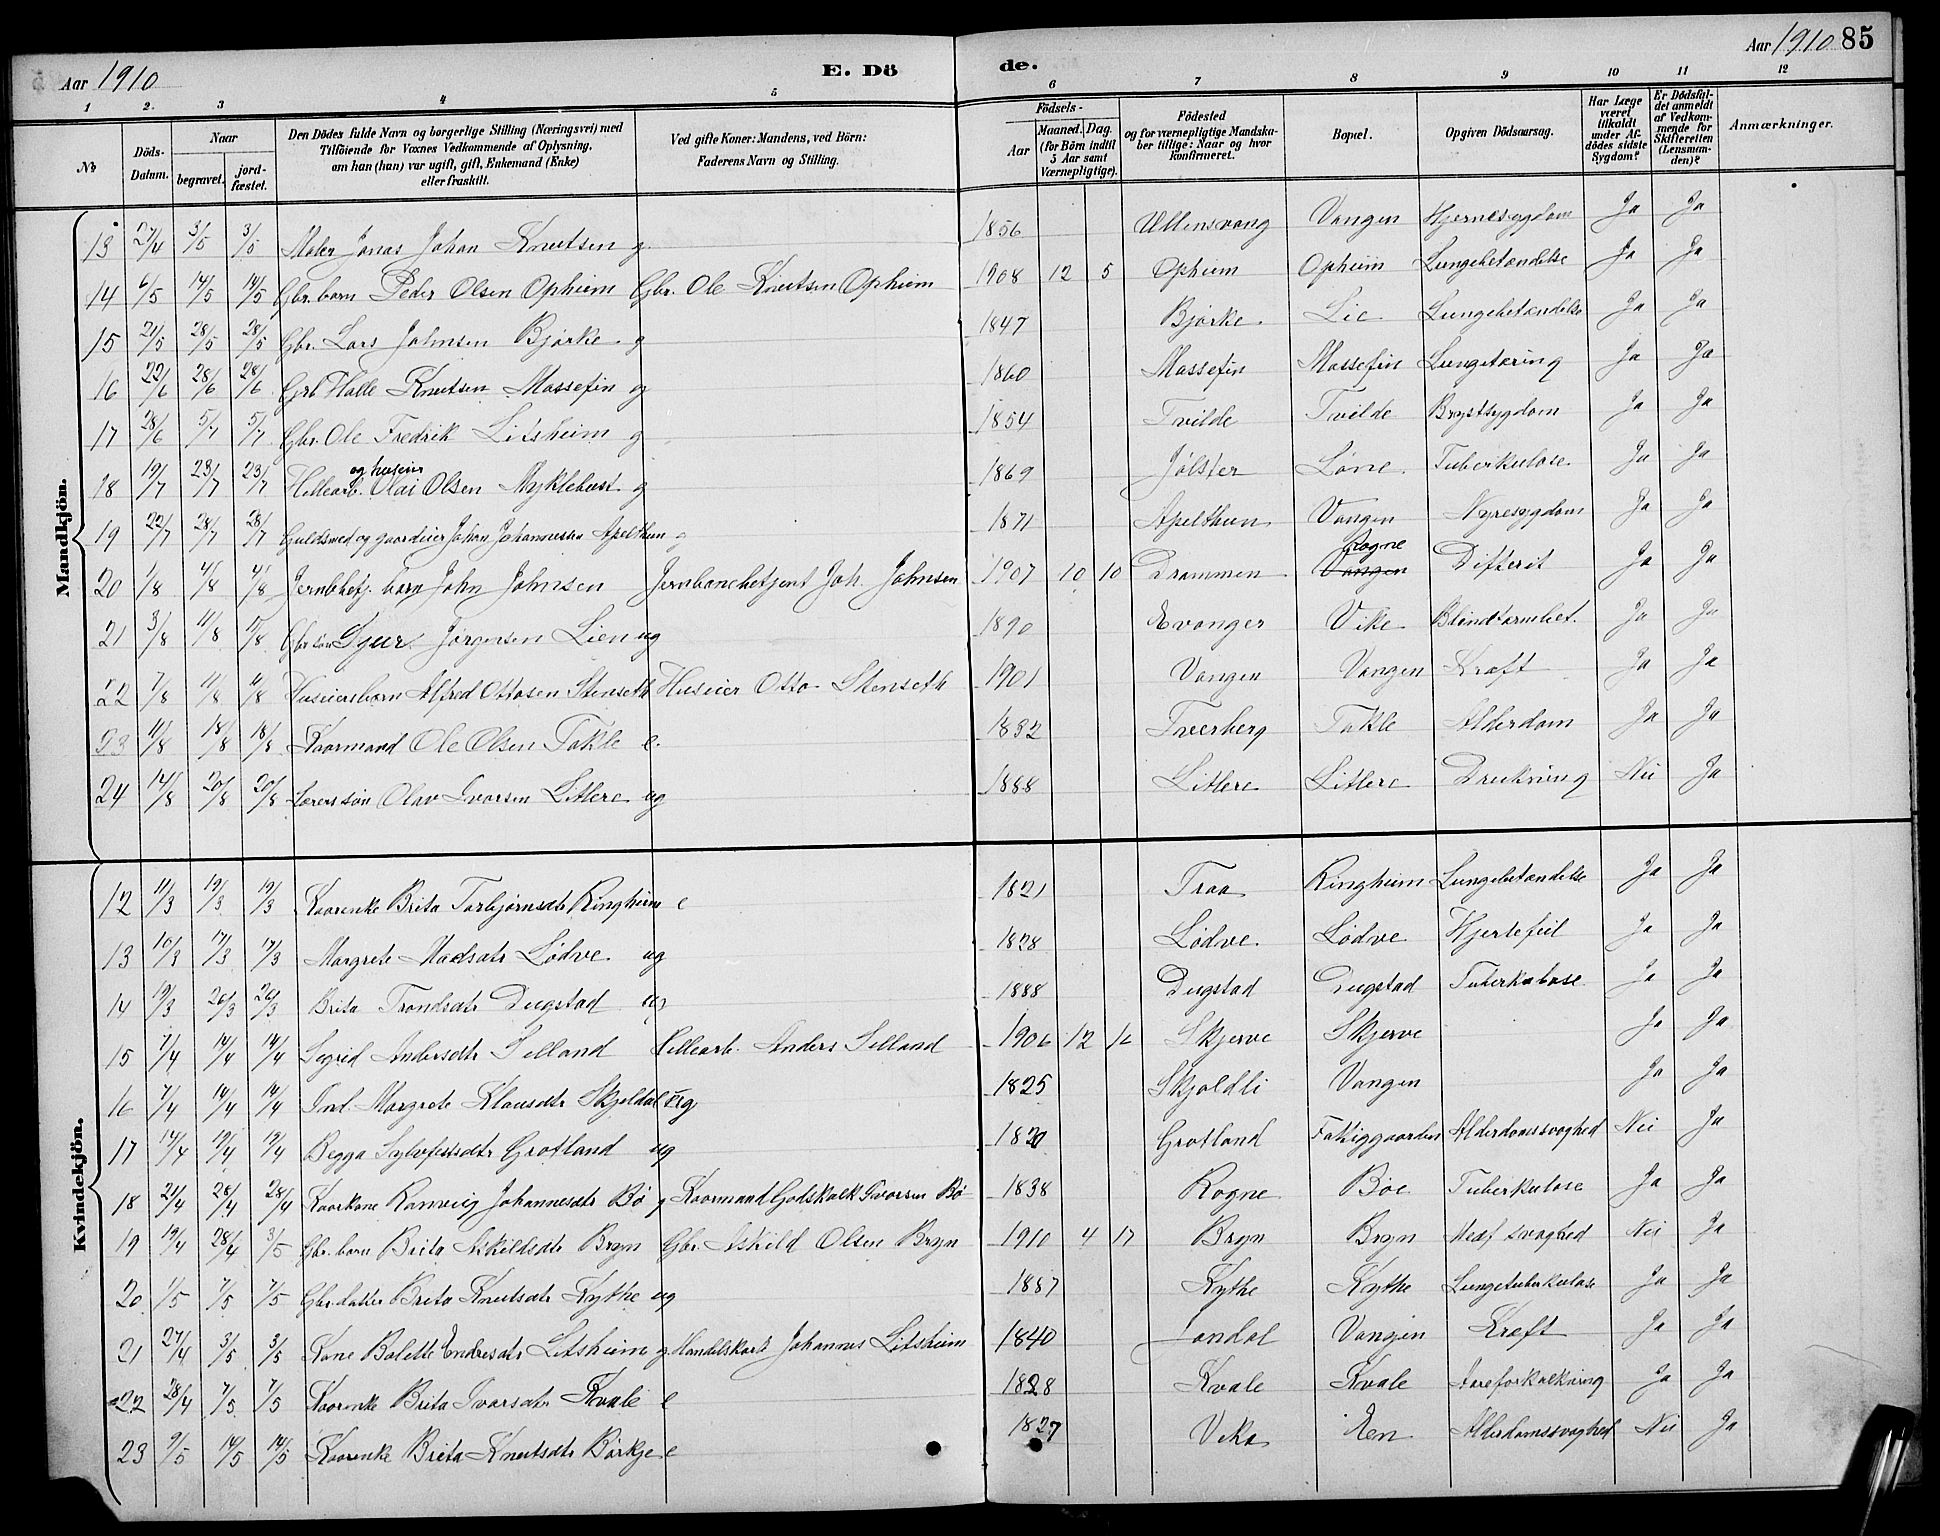 Aar 1910
E. Dö
de.
Aar 1910 85
1 2. 3 4 5 6 7 8 9 10 11 12
No
Döds-Datum.
Naar
begravet.
jord-fæstet.
Den Dödes fulde Navn og borgerlige Stilling (Næringsvei) med
Tilföiende for Voxnes Vedkommende af Oplysning,
om han (hun) var ugift, gift, Enkemand (Enke)
eller fraskilt.
Ved gifte Koner: Mandens, ved Börn:
Faderens Navn og Stilling.
Födsels-
Aar
Maaned. Dag.
(for Börn indtil
5 Aar samt
Værnepligtige).
Födested
og for værnepligtige Mandska-
ber tillige: Naar og hvor
konfirmeret.
Bopæl.
Opgiven Dödsaarsag.
Har Læge
været
tilkaldt
under Af-
dödes sidste
Sygdom?
Er Dödsfal-
det anmeldt
af Vedkom-
mende for
Skifteretten
(Lensman-
den)?
Anmærkninger.
Mandkjön.
13 27/4 3/5 3/5 Maler Jonas Johan Knutsen g. 1856 Ullensvang Vangen Hjernesygdom Ja Ja
14 6/5 14/5 14/5 Gbr. barn Peder Olsen Opheim Gbr. Ole Knutsen Opheim 1908 12 5 Opheim Opheim Lungebetændelse Ja Ja
15 21/5 28/5 28/5 Gbr. Lars Johnsen Bjørke g 1847 Bjørke Lie Lungebetændelse Ja Ja
16 22/6 28/6 28/6 Grb Halle Knutsen Møssefin g 1860 Møssefin Møssefin Lungetæring Ja Ja
17 28/6 5/7 5/7 Gbr. Ole Fredrik Litsheim g 1854 Tvilde Tvilde Brystsygdom Ja Ja
18 19/7 23/7 23/7 Hellearb. og huseier Olai Olsen Myklebust g 1869 Jølster Løne Tuberkulose Ja Ja
19 22/7 28/7 28/7 Guldsmed og gaardeier Johan Johannessen Apelthun g 1871 Apelthun Vangen Nyresygdom Ja Ja
20 1/8 4/8 4/8 Jernbbetj. barn John Johnsen Jernbanebetjent Joh. Johnsen 1907 10 10 Drammen Vangen Rogne Difterit Ja Ja
21 3/8 11/8 17/8 Gbr søn Sjur Jørgensen Lien ug 1890 Evanger Vike Blindtarmbet. Ja Ja
22 7/8 11/8 11/8 Huseiersbarn Alfred Ottosen Stenseth Huseier Otto Stenseth 1901 Vangen Vangen Kræft Ja Ja
23 11/8 18/8 18/8 Kaarmand Ole Olsen Takle e. 1832 Tverberg Takle Alderdom Ja Ja
24 14/8 20/8 20/8 Lærers søn Olav Ivarsen Litlere ug 1888 Litlere Litlere Drukning Nei Ja
Kvindekjön.
12 11/3 19/3 19/3 Kaarenke Brita Torbjørnsdtr Ringheim e 1821 Traa Ringheim Lungebetændelse Ja Ja
13 10/3 17/3 17/3 Margrete Madsdtr Lødve ug 1828 Lødve Lødve Hjertefeil Ja Ja
14 19/3 26/3 26/3 Brita Trondsdtr Dugstad ug 1888 Dugstad Dugstad Tuberkulose Ja Ja
15 7/4 14/4 14/4 Sigrid Andersdtr Selland Hellearb. Anders Selland 1906 12 16 Skjerve Skjerve Ja Ja
16 7/4 14/4 14/4 Ind. Margrete Klausdtr Skjeldal ug 1825 Skjoldli Vangen Ja Ja
17 14/4 19/4 19/4 Begga Sylvfestsdtr Grotland ug 1820 Grotland Fattiggaarden Alderdomssvaghed Nei Ja
18 21/4 28/4 28/4 Kaarkone Ranveig Johannesdtr Bø g Kaarmand Godskalk Ivarsen Bø 1838 Rogne Bøe Tuberkulose Ja Ja
19 19/4 28/4 3/5 Gbr. barn Brita Askildsdtr Bryn Gbr. Askild Olsen Bryn 1910 4 17 Bryn Bryn Medf svaghed Nei Ja
20 1/5 7/5 7/5 Gbr. datter Brita Knutsdtr Kythe ug 1887 Kythe Kythe Lungetuberkulose Ja Ja
21 27/4 3/5 3/5 Kone Bolette Endresdtr Litsheim g. Handelskarl Johannes Litsheim 1840 Vangen Kræft Ja Ja
22 28/4 7/5 7/5 Kaarenke Brita Ivarsdtr Kvale e 1828 Kvale Kvale Aareforkalkning Ja Ja
23 9/5 14/5 14/5 Kaarenke Brita Knutsdtr Børkje e 1827 Vika Een Alderdomssvaghed Nei Ja